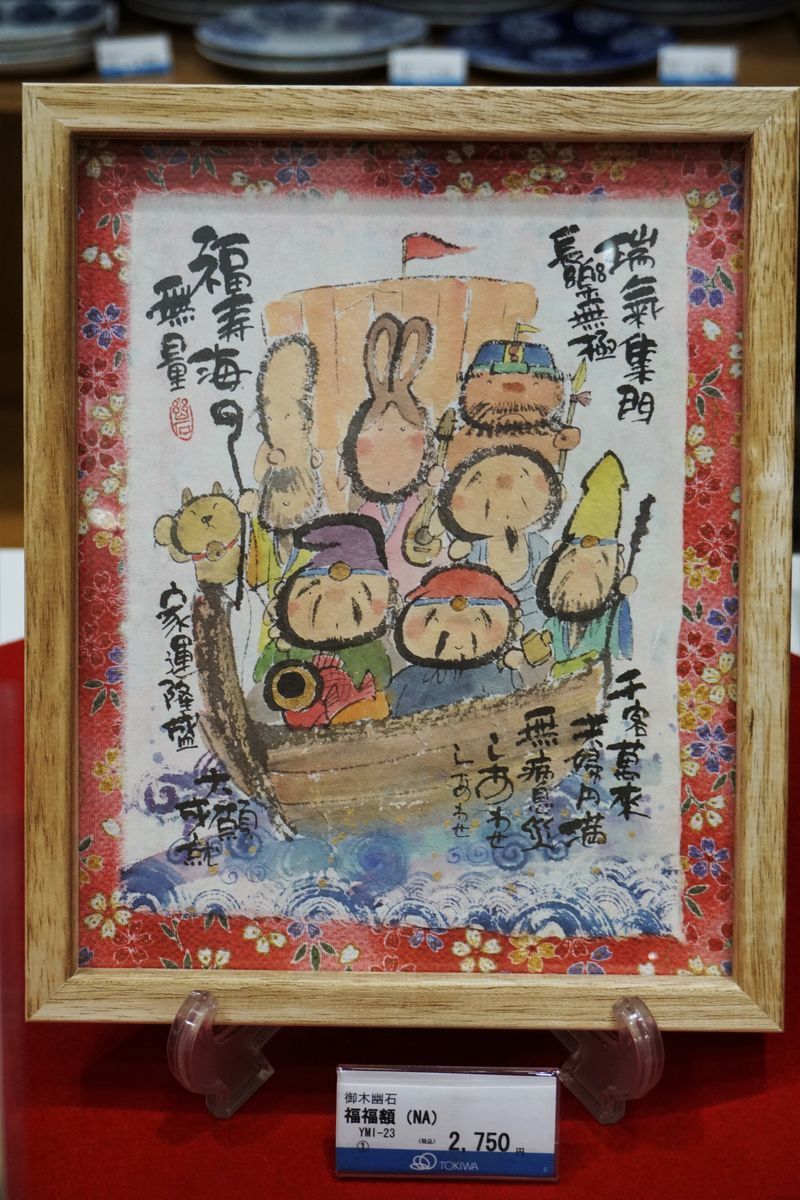 瑞氣集門
長樂無極
福寿海
無量
幽石
千客萬来
夫婦円満
無病息災
しあわせ
しあわせ
家運隆盛
大願
成就
御木幽石
福福額（NA）
YMI-23
① (税込) 2,750円
TOKIWA